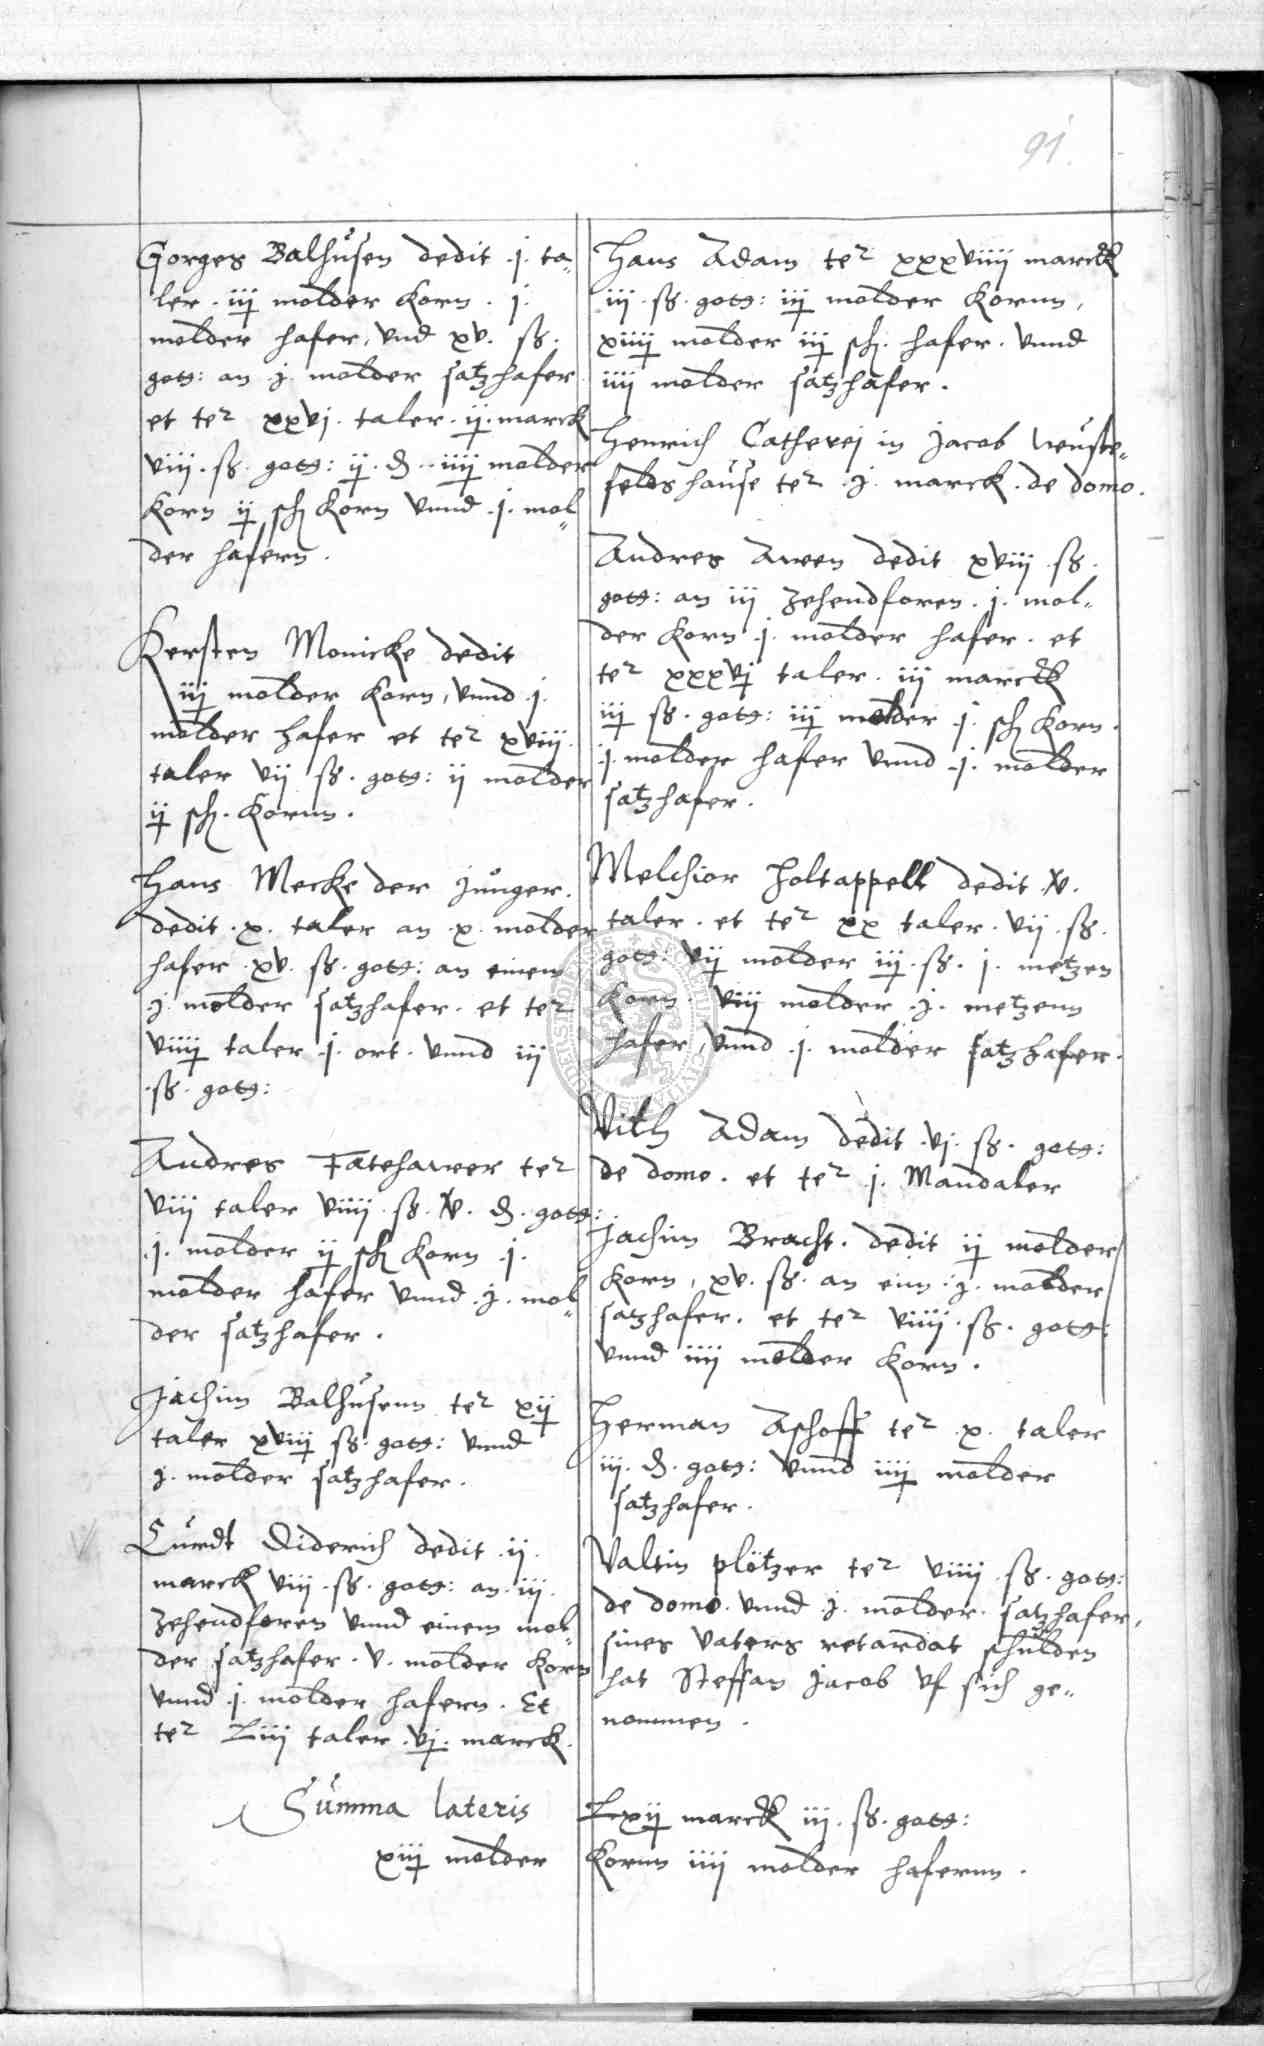 91.
Gorges Balhusen dedit .j. ta„
ler . iij molder Korn . j.
molder hafer, vnd xv. ß.
gotg: an j. molder satzhafer
et ter xxvj. taler . ij. marck
viij. ß. gotg: ij. d. iiij molder
Korn ij sch Korn vnnd .j. mol„
der hafern.
Kersten Monicke dedit
iij molder Korn, vnnd .j.
molder hafer et ter xviij.
taler vij ß. gotg: ij molder
ij sch. Kornn.
Hans Mecke der Junger.
dedit .x. taler an .x. molder
hafer .xv. ß. gotg: an einem
.j. molder satzhafer . et ter
viiij taler .j. ort . vnnd iij
.ß. gotg:
Andres ter
viij taler viiij . ß. V. d. gotg:
.j. molder ij sch Korn .j.
molder hafer vnnd .j. mol„
der satzhafer.
Jachim Balhusenn ter xij
taler xviij ß. gotg: vnnd
j. molder satzhafer.
Curdt Diderich dedit .ij.
marck viij. ß. gotg: an .iij.
zehendforen vnnd einem mol„
der satzhafer . v. molder Korn
vnnd .j. molder hafern. Et
ter Liij taler .vj. marck.
Summa lateris
xiij molder
Hans Adam ter xxxviiij marck
iij . ß. gotg: iij molder Kornn,
xiiij molder iij sch. hafer . vnnd
iiij molder satzhafer.
Henrich Catherej in Jacob
felds hause ter .j. marck . de domo.
Andres Awen dedit xviij . ß.
gotg: an iij zehendforen . j. mol„
der Korn .j. molder hafer . et
ter xxxvj taler . iij marck
iij ß. gotg: iij molder .j. sch Korn.
.j. molder hafer vnnd .j. molder
satzhafer.
Melchior Holtappell dedit .V.
taler . et ter xx taler . vij . ß.
gotg: vij molder iij . ß. j. metzen
Korn . viij molder .j. metzenn
hafer, vnnd .j. molder satzhafer.
Vith Adam dedit .vj. ß. gotg:
de domo . et ter j. Mandaler
Jachim Bracht . dedit ij molder
Korn, xv. ß. an einn .j. molder
satzhafer . et ter viiij . ß. gotg:
vnnd iiij molder Korn.
Herman Aschoff ter .x. taler
iij . d. gotg: vnnd iiij molder
satzhafer.
Valtin plötzer ter viiij . ß. gotg:
de domo vnnd .j. molder satzhafer,
sines vaters retardat schulden
hat Steffan Jacob vf sich ge„
nommen.
Lxij marck iij. ß. gotg:
Kornn iiij molder hafernn.